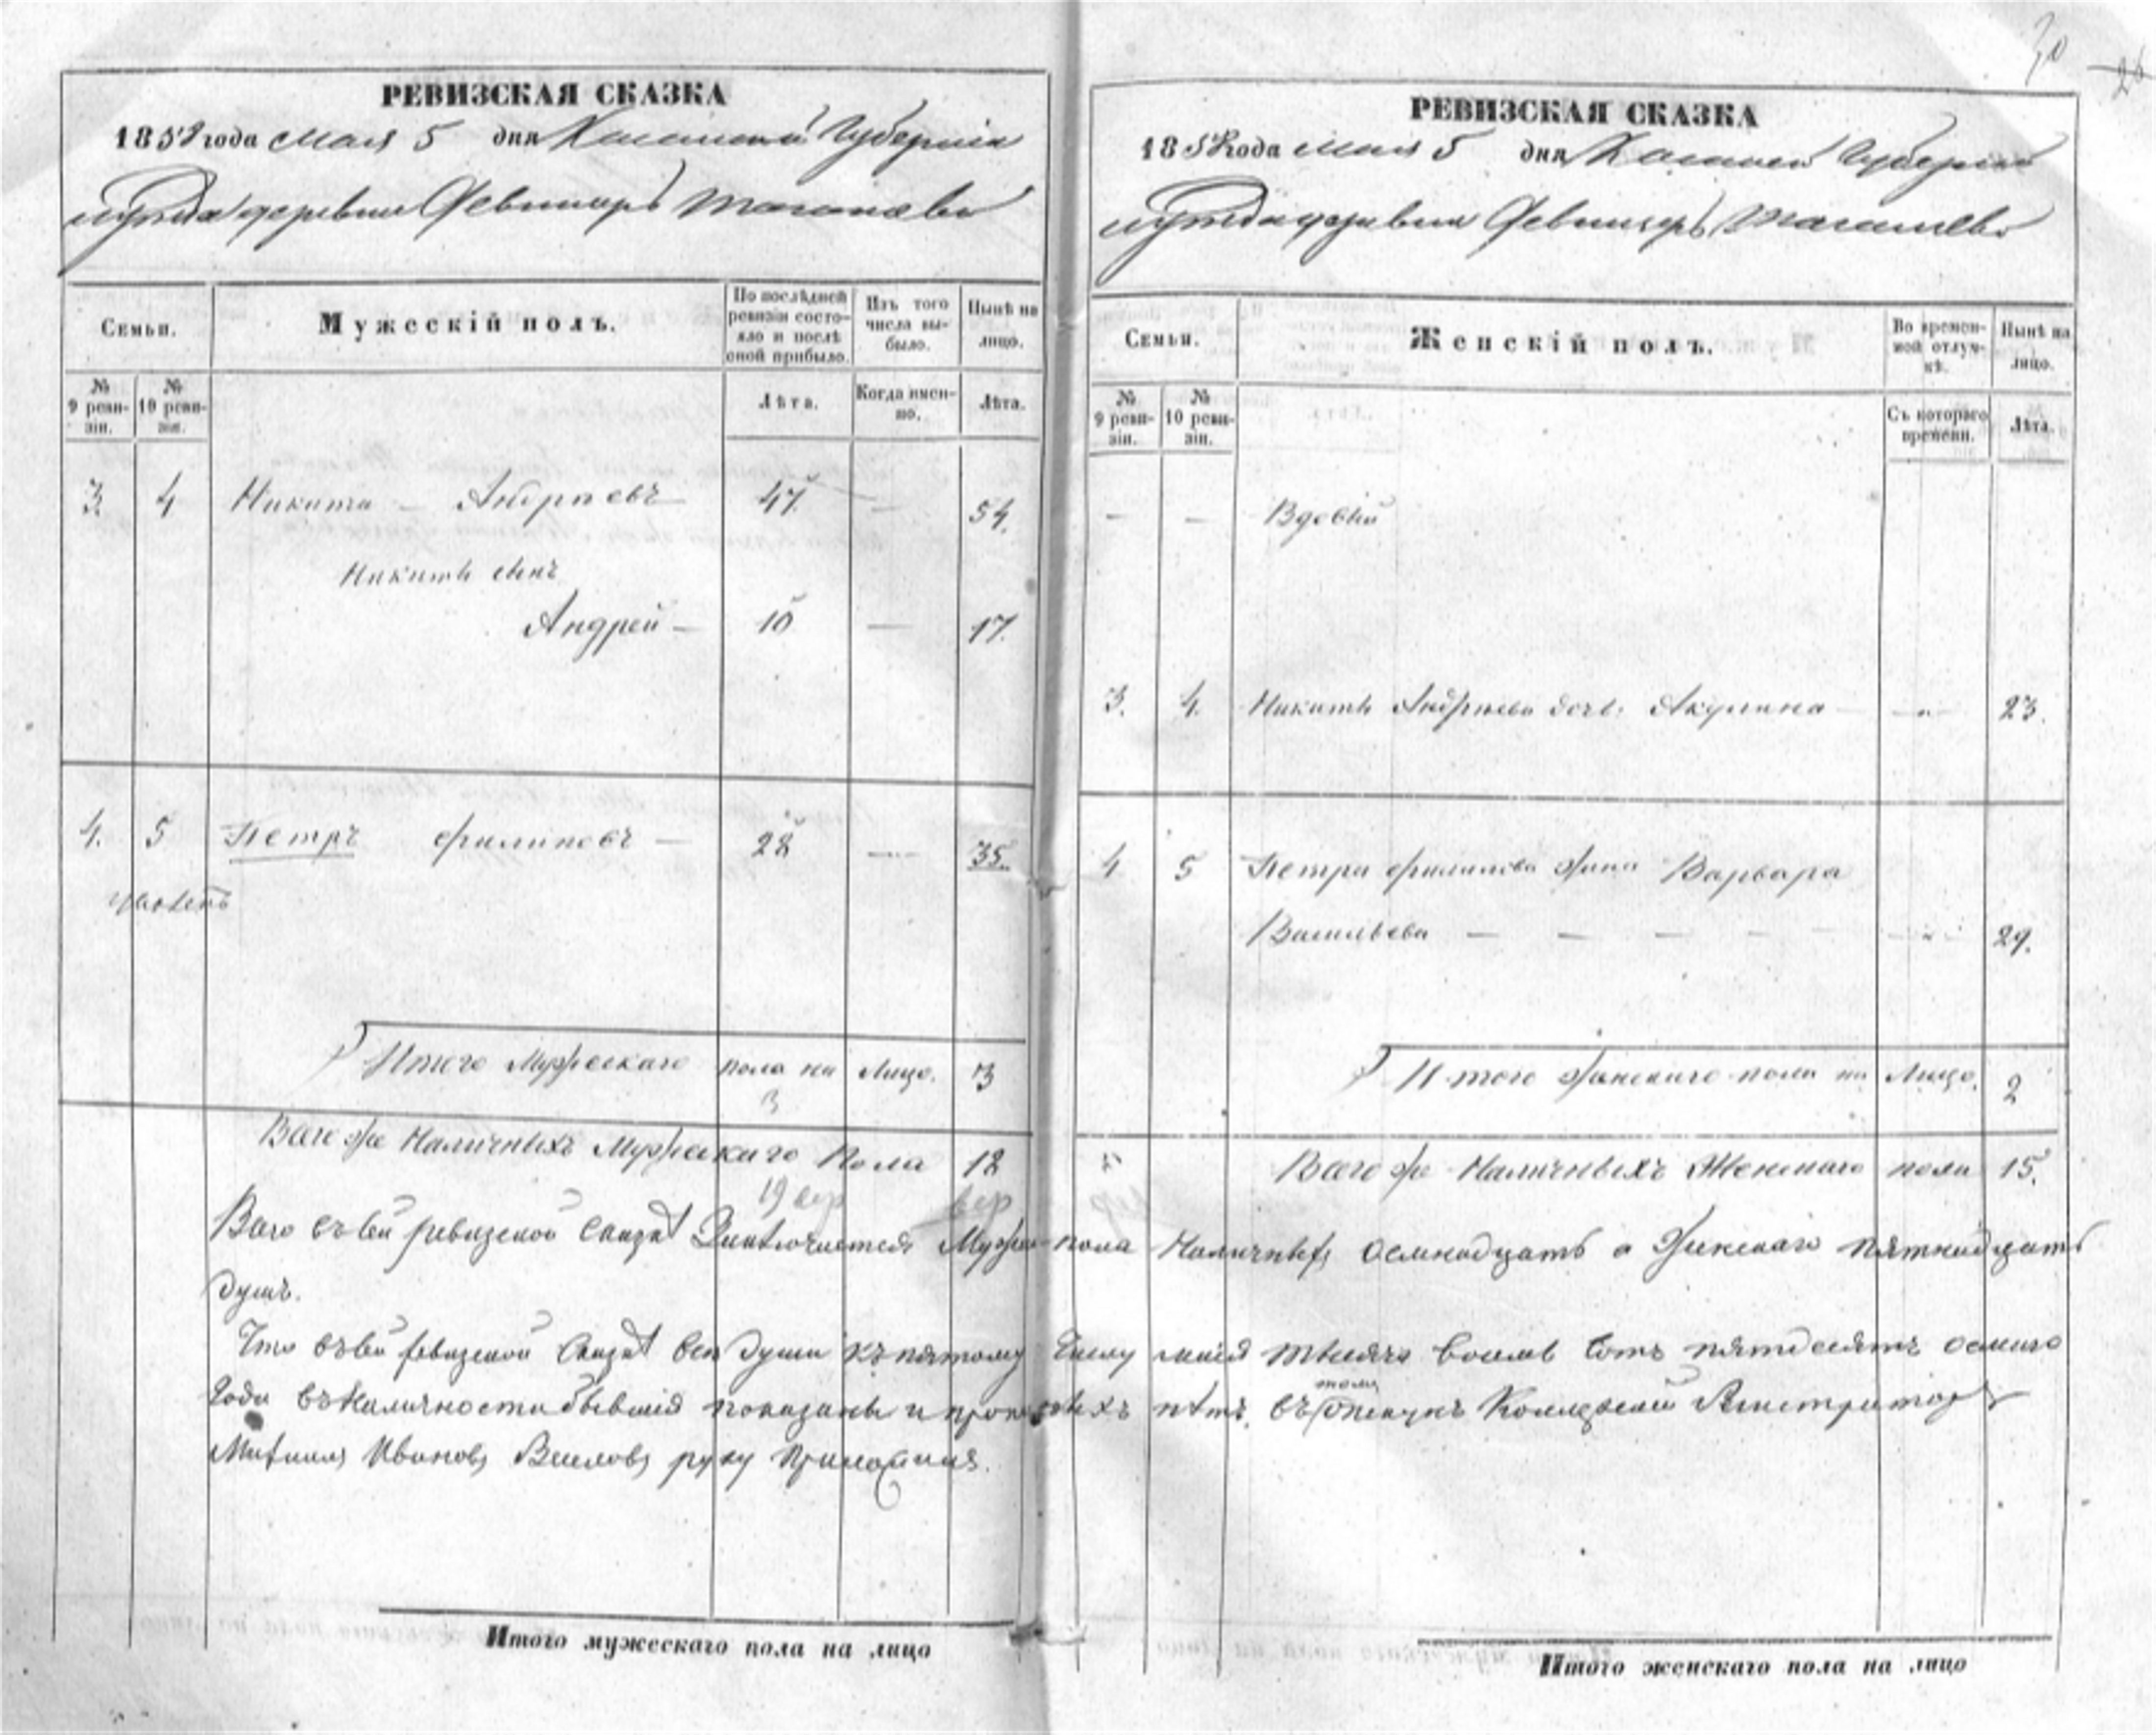 РЕВИЗСКАЯ СКАЗКА
1858 года Мая 5 дня Казанской Губернии
уезда деревни
Семьи.
Мужескій полъ.
По послѣдней ревизіи состояло и послѣ оной прибыло.
Изъ того числа выбыло.
Нынѣ на лицо.
№ 9 ревизіи.
№ 10 ревизіи.
Лѣта.
Когда именно.
Лѣта.
3. 4 Никита — Андреевъ 47 — 54.
Никиты сынъ
Андрей — 10 — 17.
4. 5 Петръ Филиповъ — 28 — 35.
Итого Мужескаго пола на Лицо. 3
3
Всего же Наличныхъ Мужескаго Пола 18
19
РЕВИЗСКАЯ СКАЗКА
30
26
1858 года Мая 5 дня Казанской Губернии
уезда деревни
Семьи.
Женскій полъ.
Во временной отлучкѣ.
Нынѣ на лицо.
№ 9 ревизіи.
№ 10 ревизіи.
Съ котораго времени.
Лѣта.
— — Вдовый
3. 4. Никиты Андреева дочь Акулина — 23.
4 5 Петра Филипова жена Варвара
Васильева — — — — — 29.
Итого женскаго пола на Лицо. 2
Всего же Наличныхъ Женскаго пола 15.
Всего въ сей ревизской сказкѣ Заключается Мужес пола Наличныхъ осмнадцать а Женскаго пятнадцать
душъ.
Что въ сей ревизской сказкѣ все души къ пятому числу маія тысяча восемь сотъ пятдесятъ осмаго
года въ наличности бывшія показаны и прописныхъ нѣтъ, въ томъ опекунъ Коллежскій Регистраторъ
Иванов руку приложилъ.
Итого мужескаго пола на лицо
Итого женскаго пола на лицо